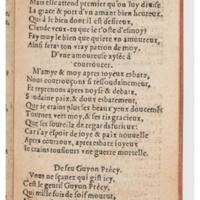 Mais elle attend premier qu'on luy diuise
La grace & port d'vn amant bien heureux.
Qui à le bien dont il est desireux,
L'ëtende veux-tu que ie t'oste d'esmoy?
Fay moy le bien que quiete vn amoureux,
Ainsi seras ton vray patron de moy.
D'vne amoureuse aysée à
courroucer.
M'amye & moy apres ioyeux esbatz,
Nous courrouçons si tressoudainement,
Et reprenons apres noysë & debatz,
Soudaine paix, & doux esbatement,
Que ie crains plus ses beaux yeux doucement
Tournez vers moy, & ses ris gracieux,
Que ses sourcilz de regards furieux:
Car i'ay espoir de ioye & paix nouuelle
Apres courroux, apres esbatz ioyeux
Ie crains tousiours vne guerre mortelle.
De feu Guyon Précy.
Vous ne sçauez qui gist icy,
C'est le gentil Guyon Précy,
Qui mille fois de soif mourut,